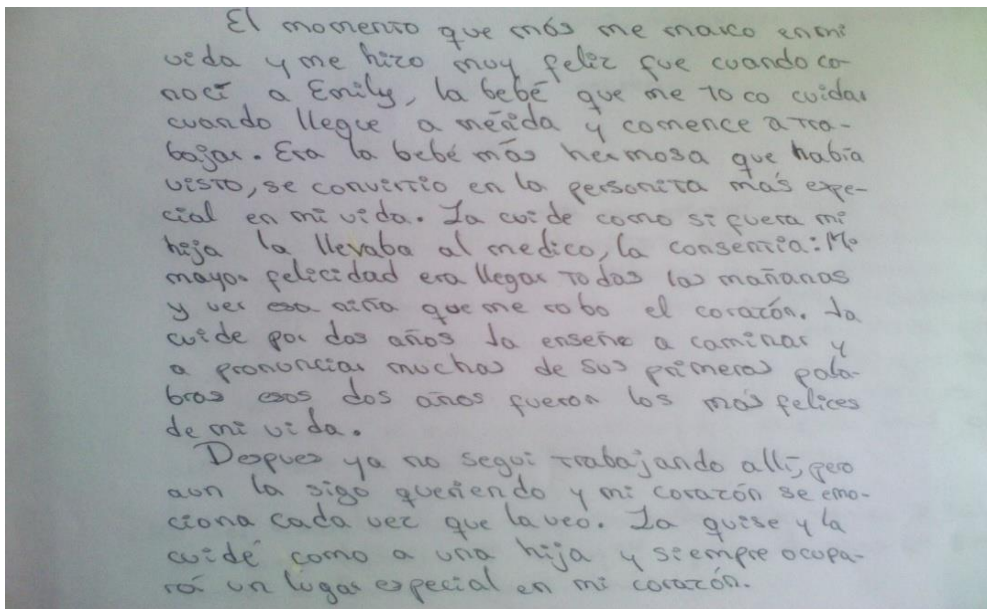 El momento que más me marco en mi
vida y me hizo muy feliz fue cuando co-
nocí a Emily, la bebé que me toco cuidar
cuando llegue a mérida y comence a tra-
bajar. Era la bebé más hermosa que había
visto, se convirtio en la personita más espe-
cial en mi vida. La cuide como si fuera mi
hija la llevaba al medico, la consentia: Mi
mayor felicidad era llegar todas las mañanas
y ver esa niña que me robo el corazón. La
cuide por dos años la enseñe a caminar y
a pronunciar muchas de sus primeras pala-
bras esos dos años fueron los más felices
de mi vida.
Despues ya no segui trabajando allí, pero
aun la sigo queriendo y mi corazón se emo-
ciona cada vez que la veo. La quise y la
cuidé como a una hija y siempre ocupa-
rá un lugar especial en mi corazón.